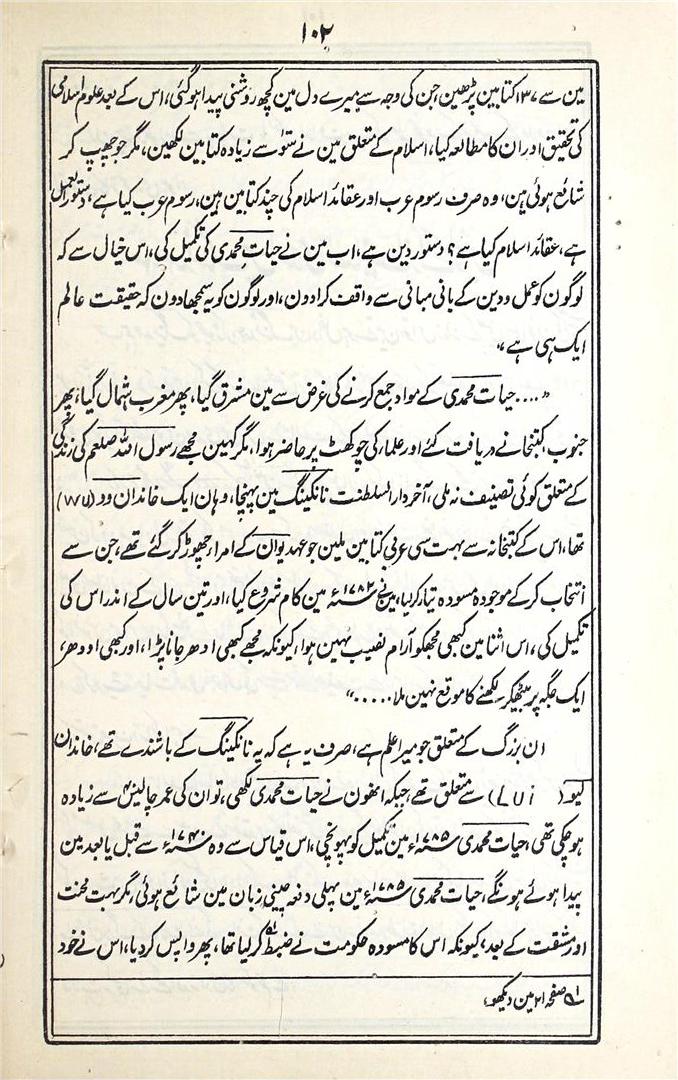 ۱۰۲
مین سے ۱۳۷ کتابین پڑھین، جن کی وجہ سے میرے دل مین کچھ روشنی پیدا ہوگئی، اس کے بعد علوم اسلامی
کی تحقیق اور ان کا مطالعہ کیا، اسلام کے متعلق مین نے سَو سے زیادہ کتابین لکھین، مگر جو چھپ کر
شائع ہوئی ہین، وہ صرف رسوم عرب اور عقائد اسلام کی چند کتابین ہین، رسوم عرب کیا ہے، دستور العمل
ہے، عقائد اسلام کیا ہے؟ دستور دین ہے، اب مین نے حیات محمدی کی تکمیل کی، اس خیال سے کہ
لوگون کو عمل و دین کے بانی مبانی سے واقف کرادون، اور لوگون کو یہ سمجھادون کہ حقیقت عالم
ایک ہی ہے،"
"....حیات محمدی کے مواد جمع کرنے کی غرض سے مین مشرق گیا، پھر مغرب شمال گیا، پھر
جنوب، کتبخانے دریافت کئے اور علماء کی چوکھٹ پر حاضر ہوا، مگر کہین مجھے رسول اللہ صلعم کی زندگی
کے متعلق کوئی تصنیف نہ ملی، آخر دار السلطنت نانکینگ مین پہنچا، وہان ایک خاندان وو (wu)
تھا، اس کے کتبخانہ سے بہت سی عربی کتابین ملین جو عہد یوان کے امراء چھوڑ کر گئے تھے، جن سے
انتخاب کرکے موجودہ مسودہ تیار کرلیا، مین نے ۱۷۸۲ء مین کام شروع کیا، اور تین سال کے اندر اس کی
تکمیل کی، اس اثنا مین کبھی مجھکو آرام نصیب نہین ہوا، کیونکہ مجھے کبھی ادھر جانا پڑا، اور کبھی اودھر،
ایک جگہ پر بیٹھکر لکھنے کا موقع نہین ملا....."
ان بزرگ کے متعلق جو میرا علم ہے، صرف یہ ہے کہ یہ نانکینگ کے باشندے تھے، خاندان
لیو (Lui) سے متعلق تھے، جبکہ انھون نے حیات محمدی لکھی، تو ان کی عمر چالیس سے زیادہ
ہوچکی تھی، حیات محمدی ۱۷۸۵ء مین تکمیل کو پہونچی، اس قیاس سے وہ ۱۷۴۰ء سے قبل یا بعد مین
پیدا ہوئے ہونگے، حیات محمدی ۱۷۸۵ء مین پہلی دفعہ چینی زبان مین شائع ہوئی، مگر بہت محنت
اور مشقت کے بعد، کیونکہ اس کا مسودہ حکومت نے ضبط کرلیا تھا، پھر واپس کردیا، اس نے خود
صفحہ ۲۱ مین دیکھو،